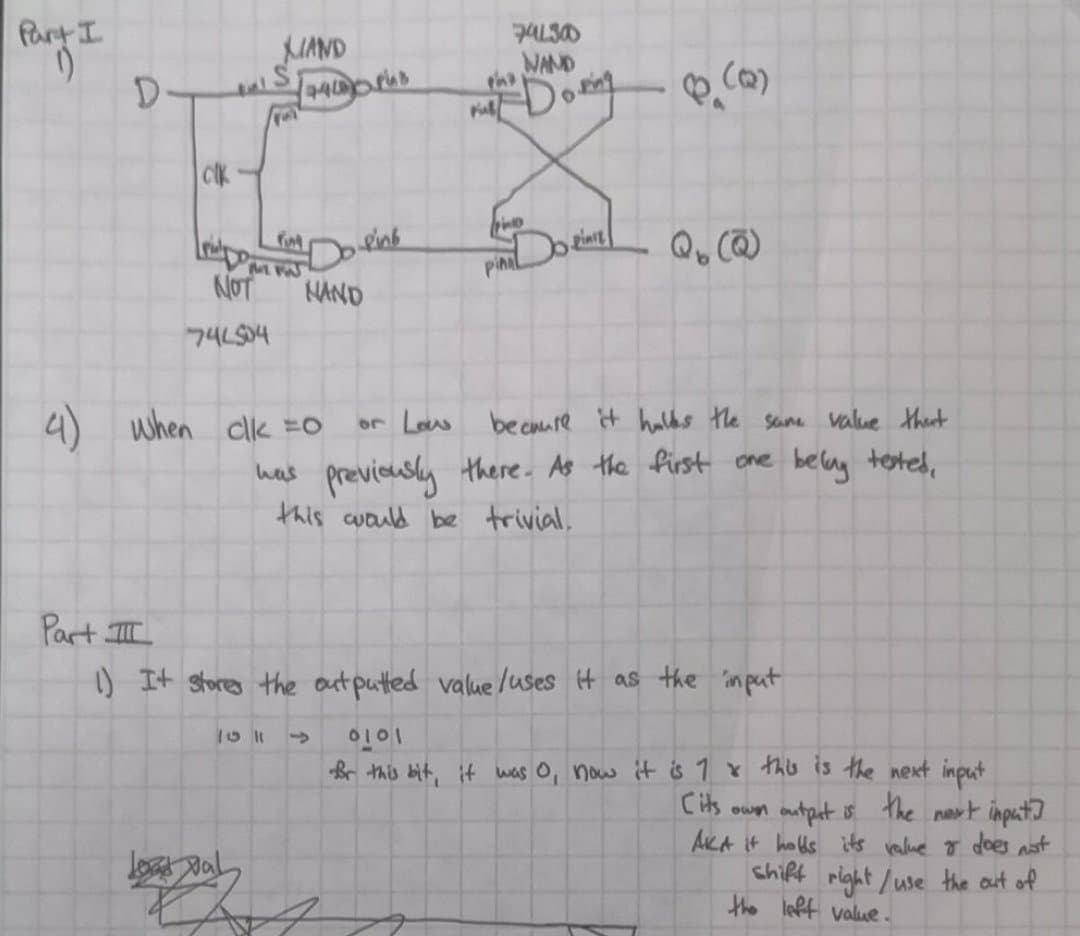 Part I
1)
NAND
74LS00
NAND
D
pin1
S
74LS00
pin3
pin9
Qa (Q)
pin2
pin8
clk
pin10
pin4
pin6
Qb (Q̄)
pin1
pin2
pin5
NOT
NAND
74LS04
4) When clk =0 or Low because it holds the same value that
was previously there. As the first one being tested,
this would be trivial.
Part III
1) It stores the outputted value/uses it as the input
1011 → 0101
for this bit, it was 0, now it is 1 & this is the next input
[its own output is the next input]
AKA it holds its value & does not
shift right / use the out of
the left value.